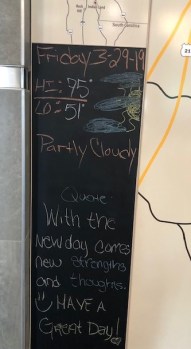 Friday 3-29-19
HI: 75°
LO: 51°
Partly Cloudy
Quote
With the
New day comes
new strengths
and thoughts.
HAVE A
Great Day!